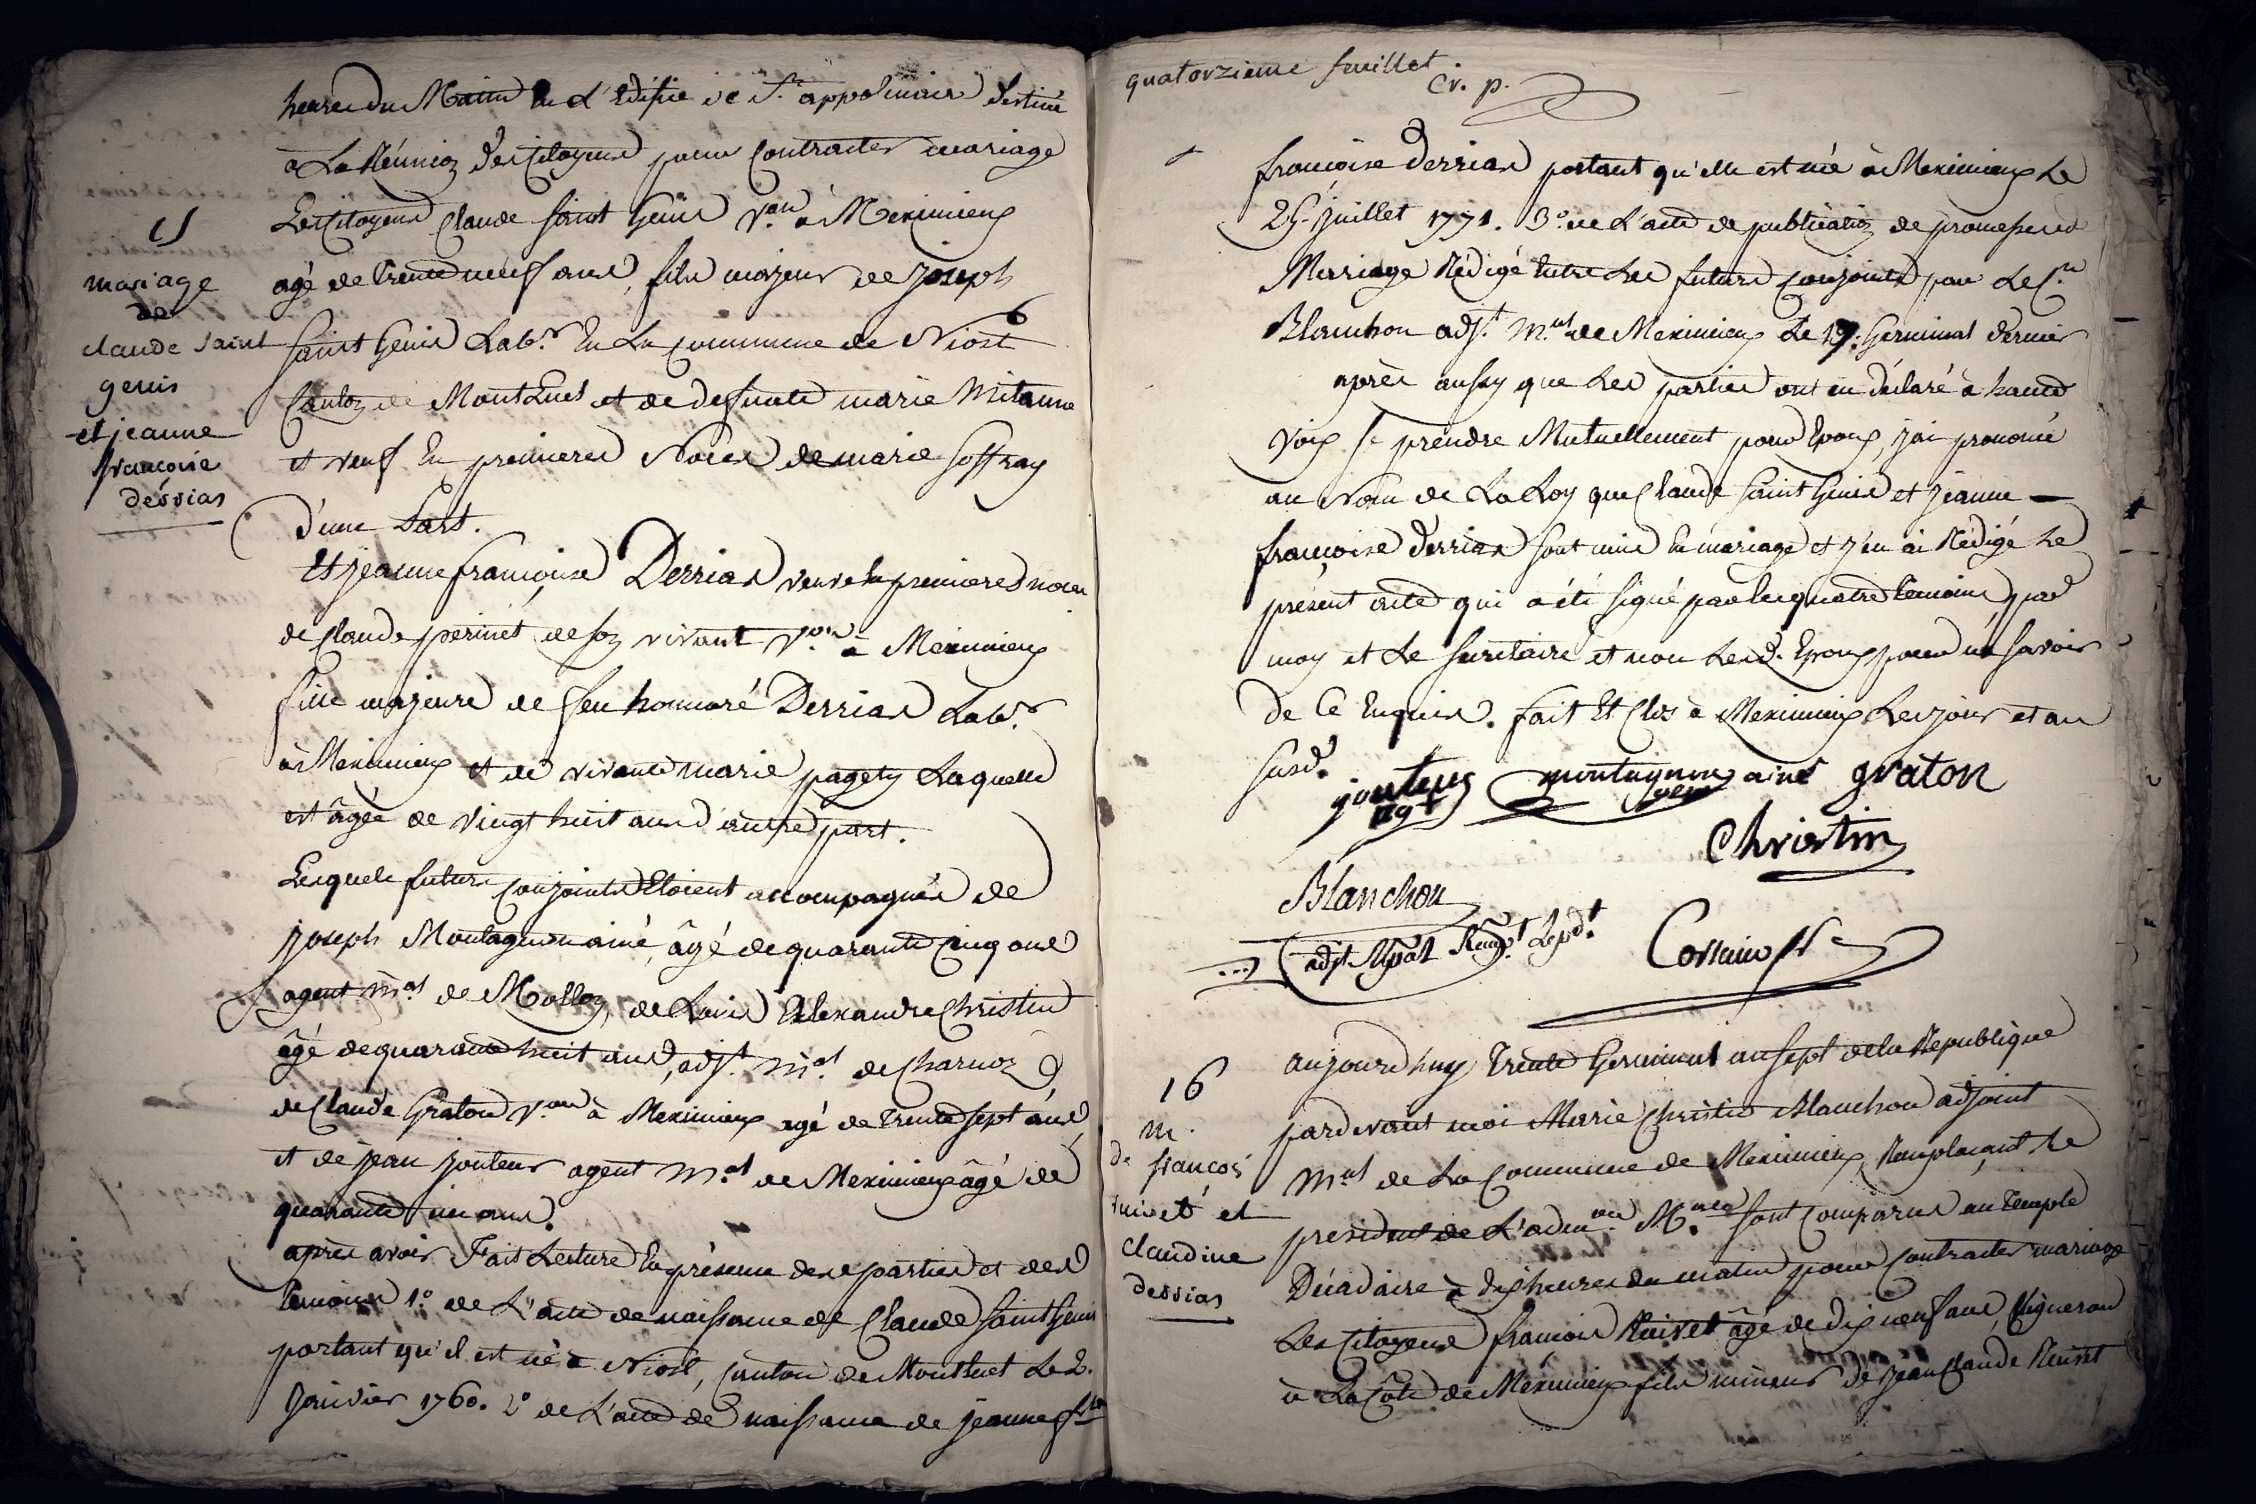 heures du Matin en L'Edifice de St. appolinaire destiné
à La Réunion des Citoyens pour Contracter mariage
Les Citoyens Claude Saint Genis v.on à Meximieux
agé de trente neuf ans, fils majeur de joseph
Saint Genis Lab.r En La Commune de Niost
Canton de MontLuel et de defunte marie Mitanne
et veuf En premieres Noces de marie Joffray
d'une Part.
Et jeanne françoise Derrias veuve En premieres noces
de Claude perinet de son vivant v.on à Meximieux
fille majeure de feu honnoré Derrias Lab.r
à Meximieux et de vivante marie pagety Laquelle
est âgée de vingt huit ans d'autre part.
Lesquels futurs conjoints Etoient accompagnés de
joseph Montagnon ainé, âgé de quarante Cinq ans
agent M.al de Mollon, de Louis Alexandre Christin
âgé de quarante huit ans, adj.t M.al de Charnoz
de Claude Graton v.on à Meximieux agé de trente sept ans,
et de jean jouteur agent M.al de Meximieux âgé de
quarante un ans.
après avoir Fait Lecture En présence des parties et des
temoins 1.o de L'acte de naissance de Claude Saint Genis
portant qu'il est né à Niost, Canton de Montluel Le 2.
Janvier 1760. 2.o de L'acte de naissance de jeanne f.se
15
mariage
de
claude Saint
genis
et jeanne
françoise
dérrias
quatorzieme feuillet
Cr. p.
françoise derrias portant qu'elle est née à Meximieux Le
25 juillet 1771. 3.o de L'acte de publication de promesses de
Mariage Rédigé Entre Les futurs conjoints par Le C.n
Blanchon adj.t M.al de Meximieux Le 19. Germinal dernier
après aussy que Les parties ont eu déclaré à haute
voix se prendre Mutuellement pour Epoux, j'ai prononcé
au Nom de La Loy que Claude Saint Genis et jeanne
françoise derrias sont unis En mariage et j'en ai Rédigé Le
présent acte qui a été signé par les quatre temoins, par
moy et Le Secretaire et non Lesd. Epoux pour ne savoir
de Ce Enquis. fait Et Clos à Meximieux Les jour et an
susd.
jouteur
agt
montagnon ainé graton
Christin
Blanchon
adjt Mpal Remp.t Le p.dt
Cossieur
16
m.
de françois
ruivet et
claudine
derrias
aujourd'huy trente Germinal an sept de la Republique
pardevant moi Marie Christin Blanchon adjoint
M.al de La Commune de Meximieux, Remplaçant Le
president de L'adm.on M.ale sont Comparus au temple
Décadaire à dix heures du matin pour Contracter mariage
Les Citoyens françois Ruivet âgé de dix neuf ans, Vigneron
à La Côte de Méximieux fils mineur de jean Claude Ruivet